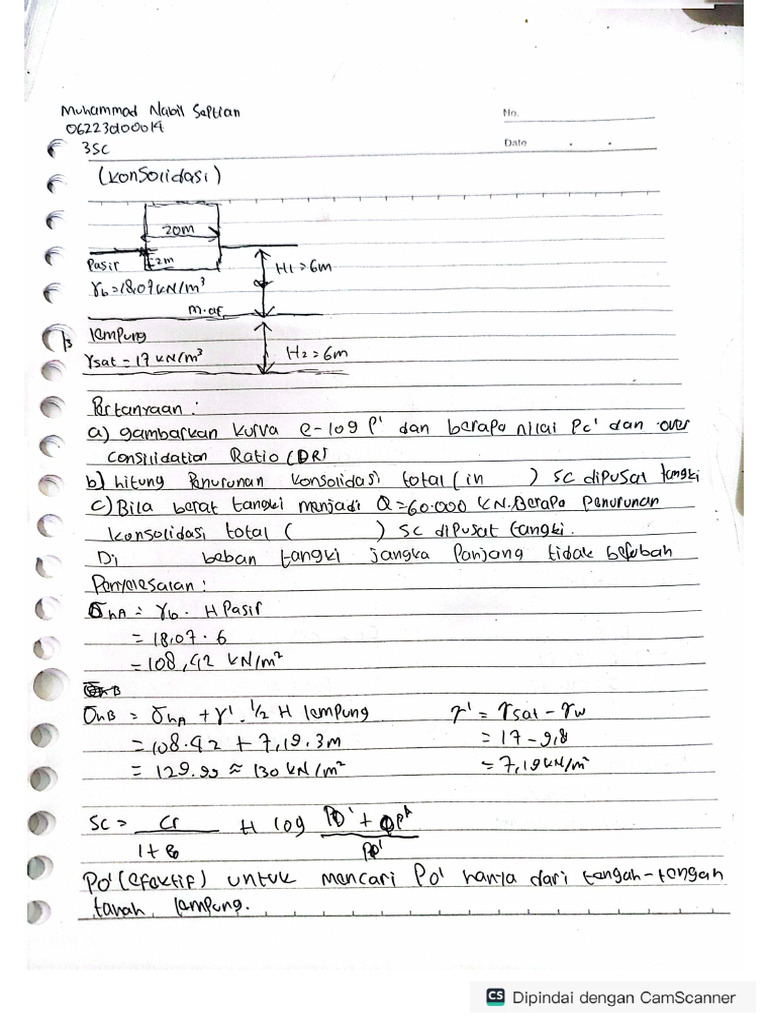 Muhammad Nabil Septian
062230100014
3SC
No.
Date
(Konsolidasi)
20m
Pasir
2m
H1 = 6m
γb = 18,07 kN/m³
m.at
lempung
γsat = 17 kN/m³
H2 = 6m
Pertanyaan :
a) gambarkan kurva e-log P' dan berapa nilai Pc' dan over
Consilidation Ratio (
b) hitung Penurunan konsolidasi total (in ) Sc dipusat tangki
c) Bila berat tangki menjadi Q = 60.000 kN. Berapa Penurunan
konsolidasi total ( ) Sc dipusat tangki.
Di beban tangki jangka Panjang tidak berubah
Penyelesaian :
σhA = γb . H Pasir
= 18,07 . 6
= 108,42 kN/m²
σhB = σhA + γ' . 1/2 H lempung
γ' = γsat - γw
= 108.42 + 7,19 . 3m
= 17 - 9,8
= 129.99 ≈ 130 kN/m²
= 7,19 kN/m²
Sc = Cr H log Po' +
1 + eo Po'
Po' (efektif) untuk mencari Po' hanya dari tengah-tengah
tanah lempung.
CS Dipindai dengan CamScanner